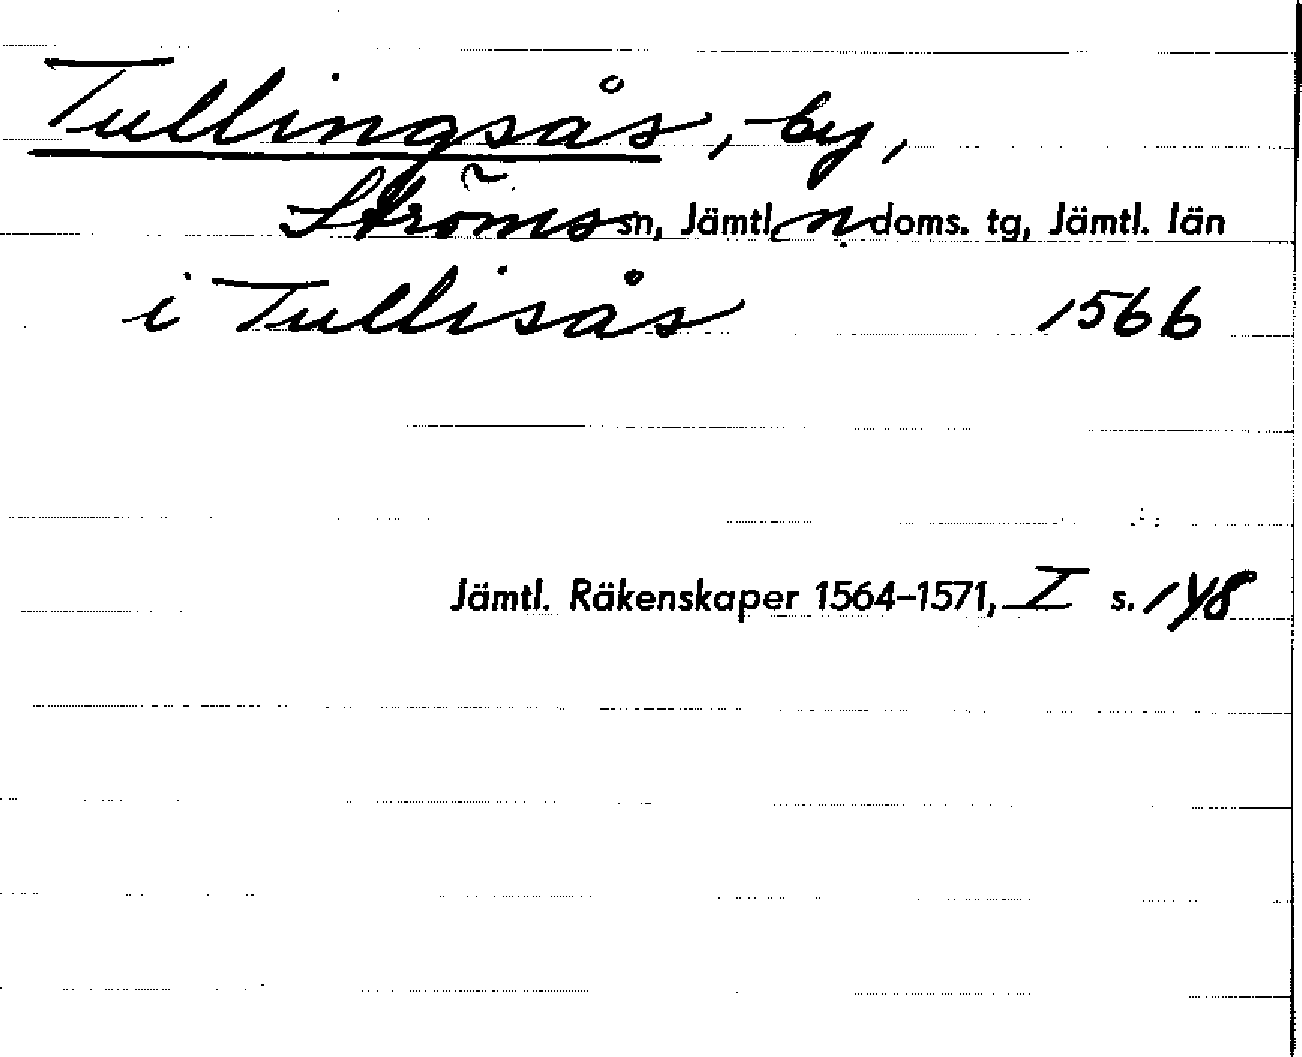 Tullingsås, by,
Ströms sn, Jämtl. n doms. tg, Jämtl. län
i Tullisås 1566
Jämtl. Räkenskaper 1564–1571, I s. 148